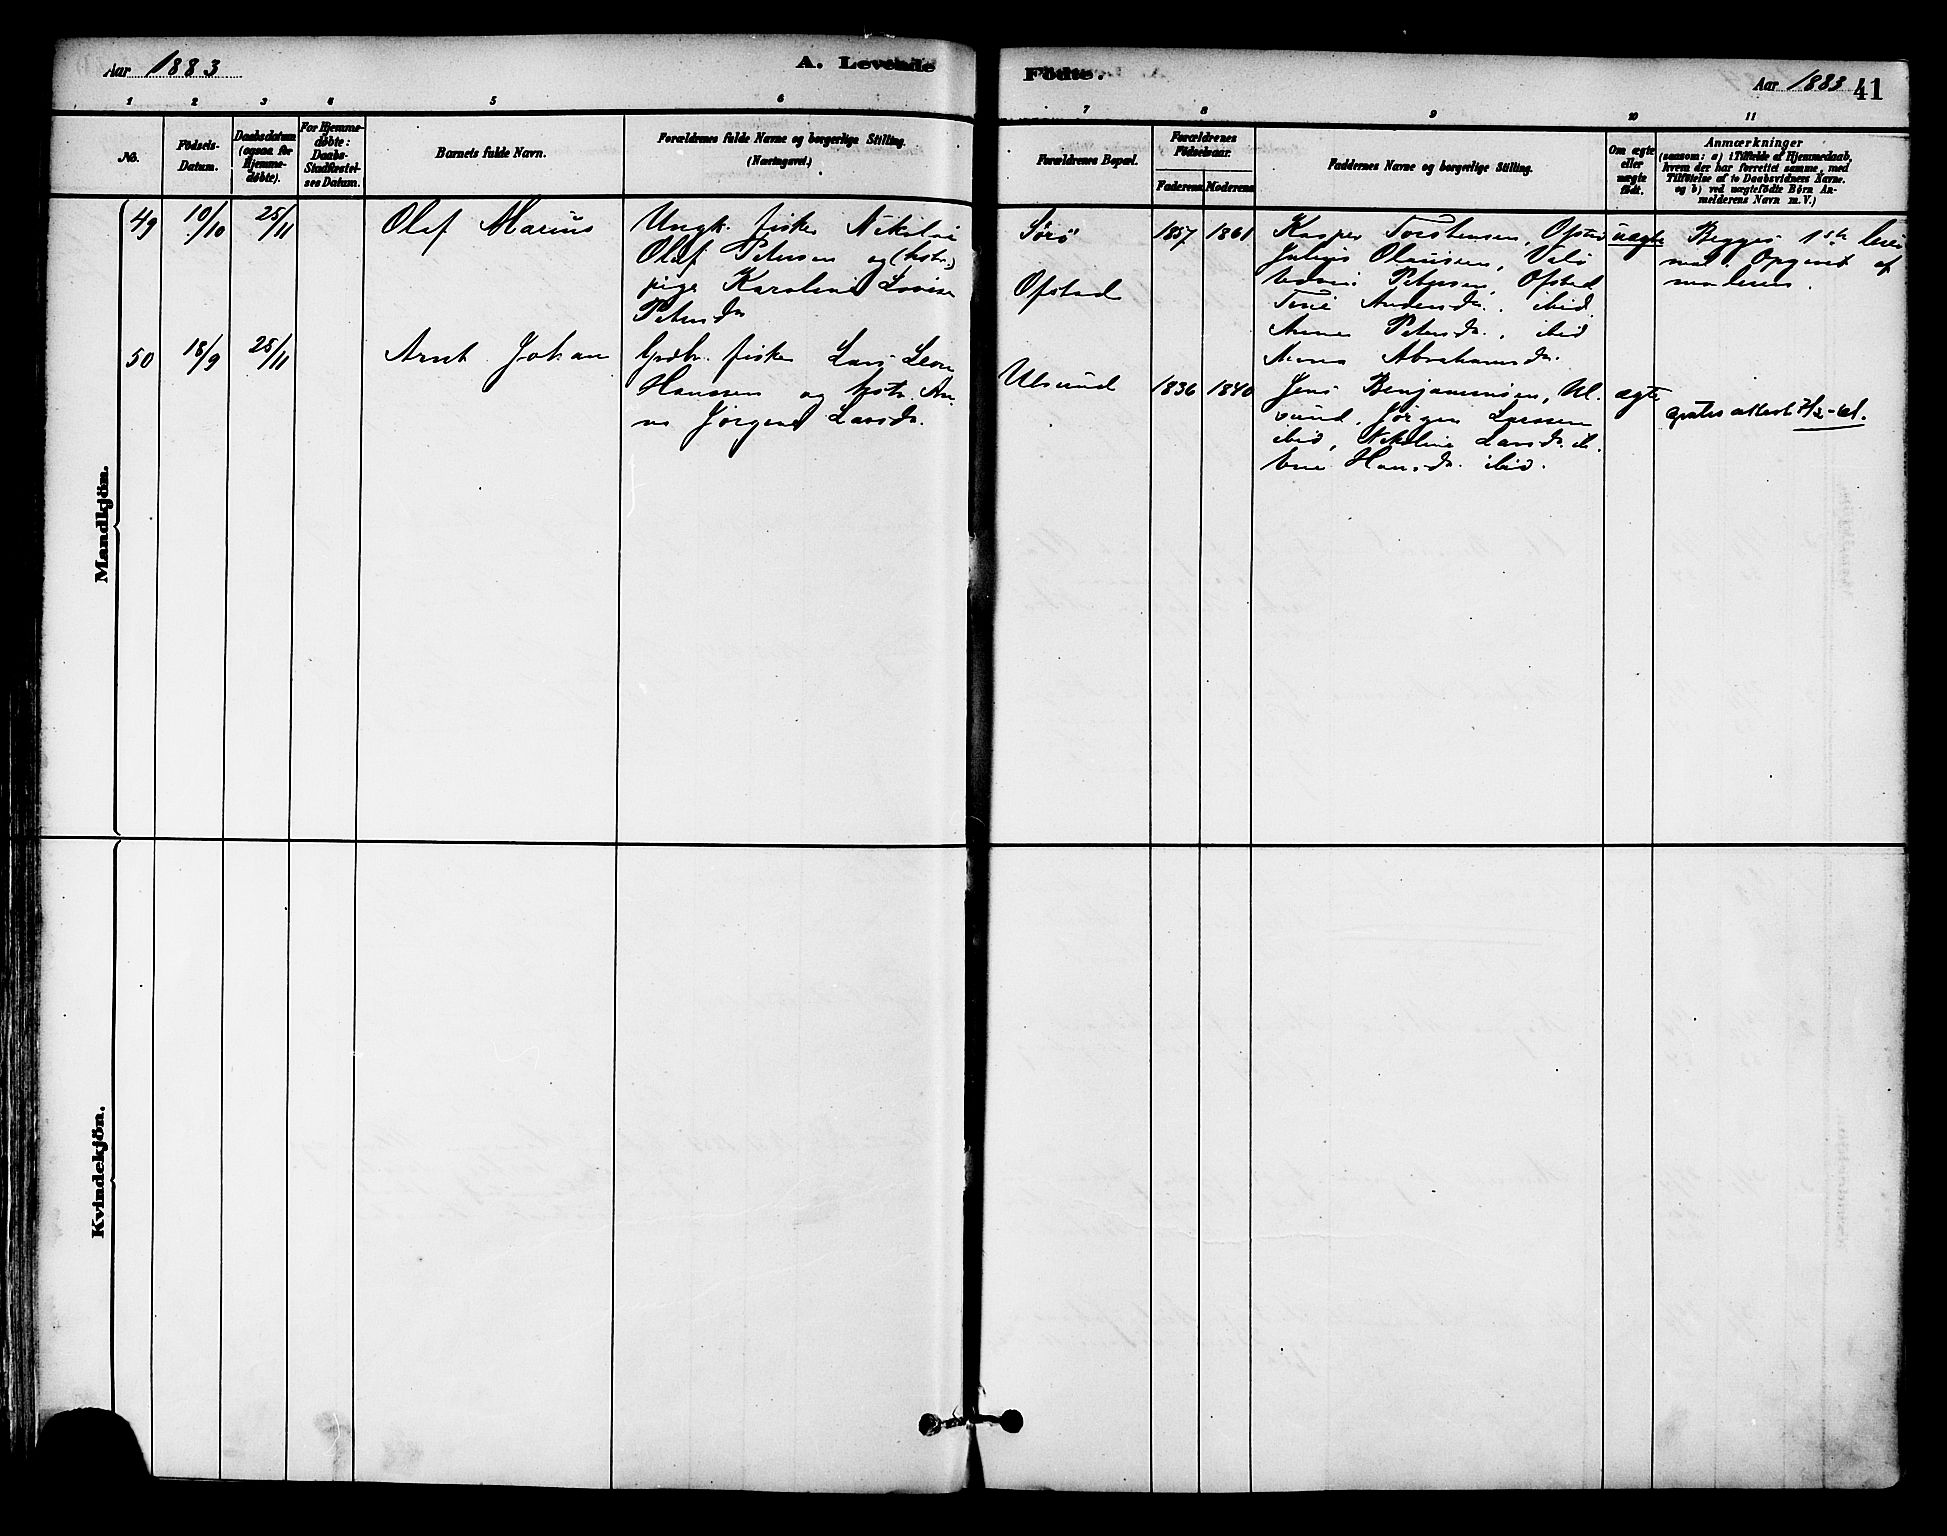 Aar 1883
A. Levende
Fødte.
Aar 1883
41
1 2 3 4 5 6 7 8 9 10 11
No.
Födsels-Datum.
Daabsdatum (ogsaa for Hjemmedøbte).
For Hjemmedøbte: Daabs-Stadfæstelses Datum.
Barnets fulde Navn.
Forældrenes fulde Navne og borgerlige Stilling.
(Næringsvei.)
Forældrenes Bopæl.
Forældrenes Fødselsaar.
Faderens Moderens
Faddernes Navne og borgerlige Stilling.
Om ægte eller uægte født.
Anmærkninger
(saasom: a) i Tilfælde af Hjemmedaab,
hvem der har forrettet samme, med
Tilføielse af to Daabsvidners Navne.
og b) ved uægtefødte Børn An-
melderens Navn m. V.)
Mandkjön.
49 10/10 25/11 Olaf Marius
Ungk. fisker Nikolai
Olaf Petersen og (hstr.)
pige Karoline Lovise
Petersdr
Sørö
Ofstad
1857 1861
Kasper Torstensen, Ofstad
Julius Olausen, Valö
Petersen, Ofstad
Andersdr. ibid.
Anna Petersdr., ibid
Anna Abrahamsdr.
uægte
Begges 1ste leier
maal. Opgivet af
moderen.
50 18/9 25/11 Arnt Johan
Grdbr. fisker Lars Leon
Hanssen og hstr. An-
na Jørgine Larsdr.
Ulsund
1836 1840
Jens Benjaminsen, Ul-
sund, Jørgen Larssen
ibid, Nikoline Larsdr. ib.
Hansdr. ibid.
ægte
gratis attest
Kvindekjön.